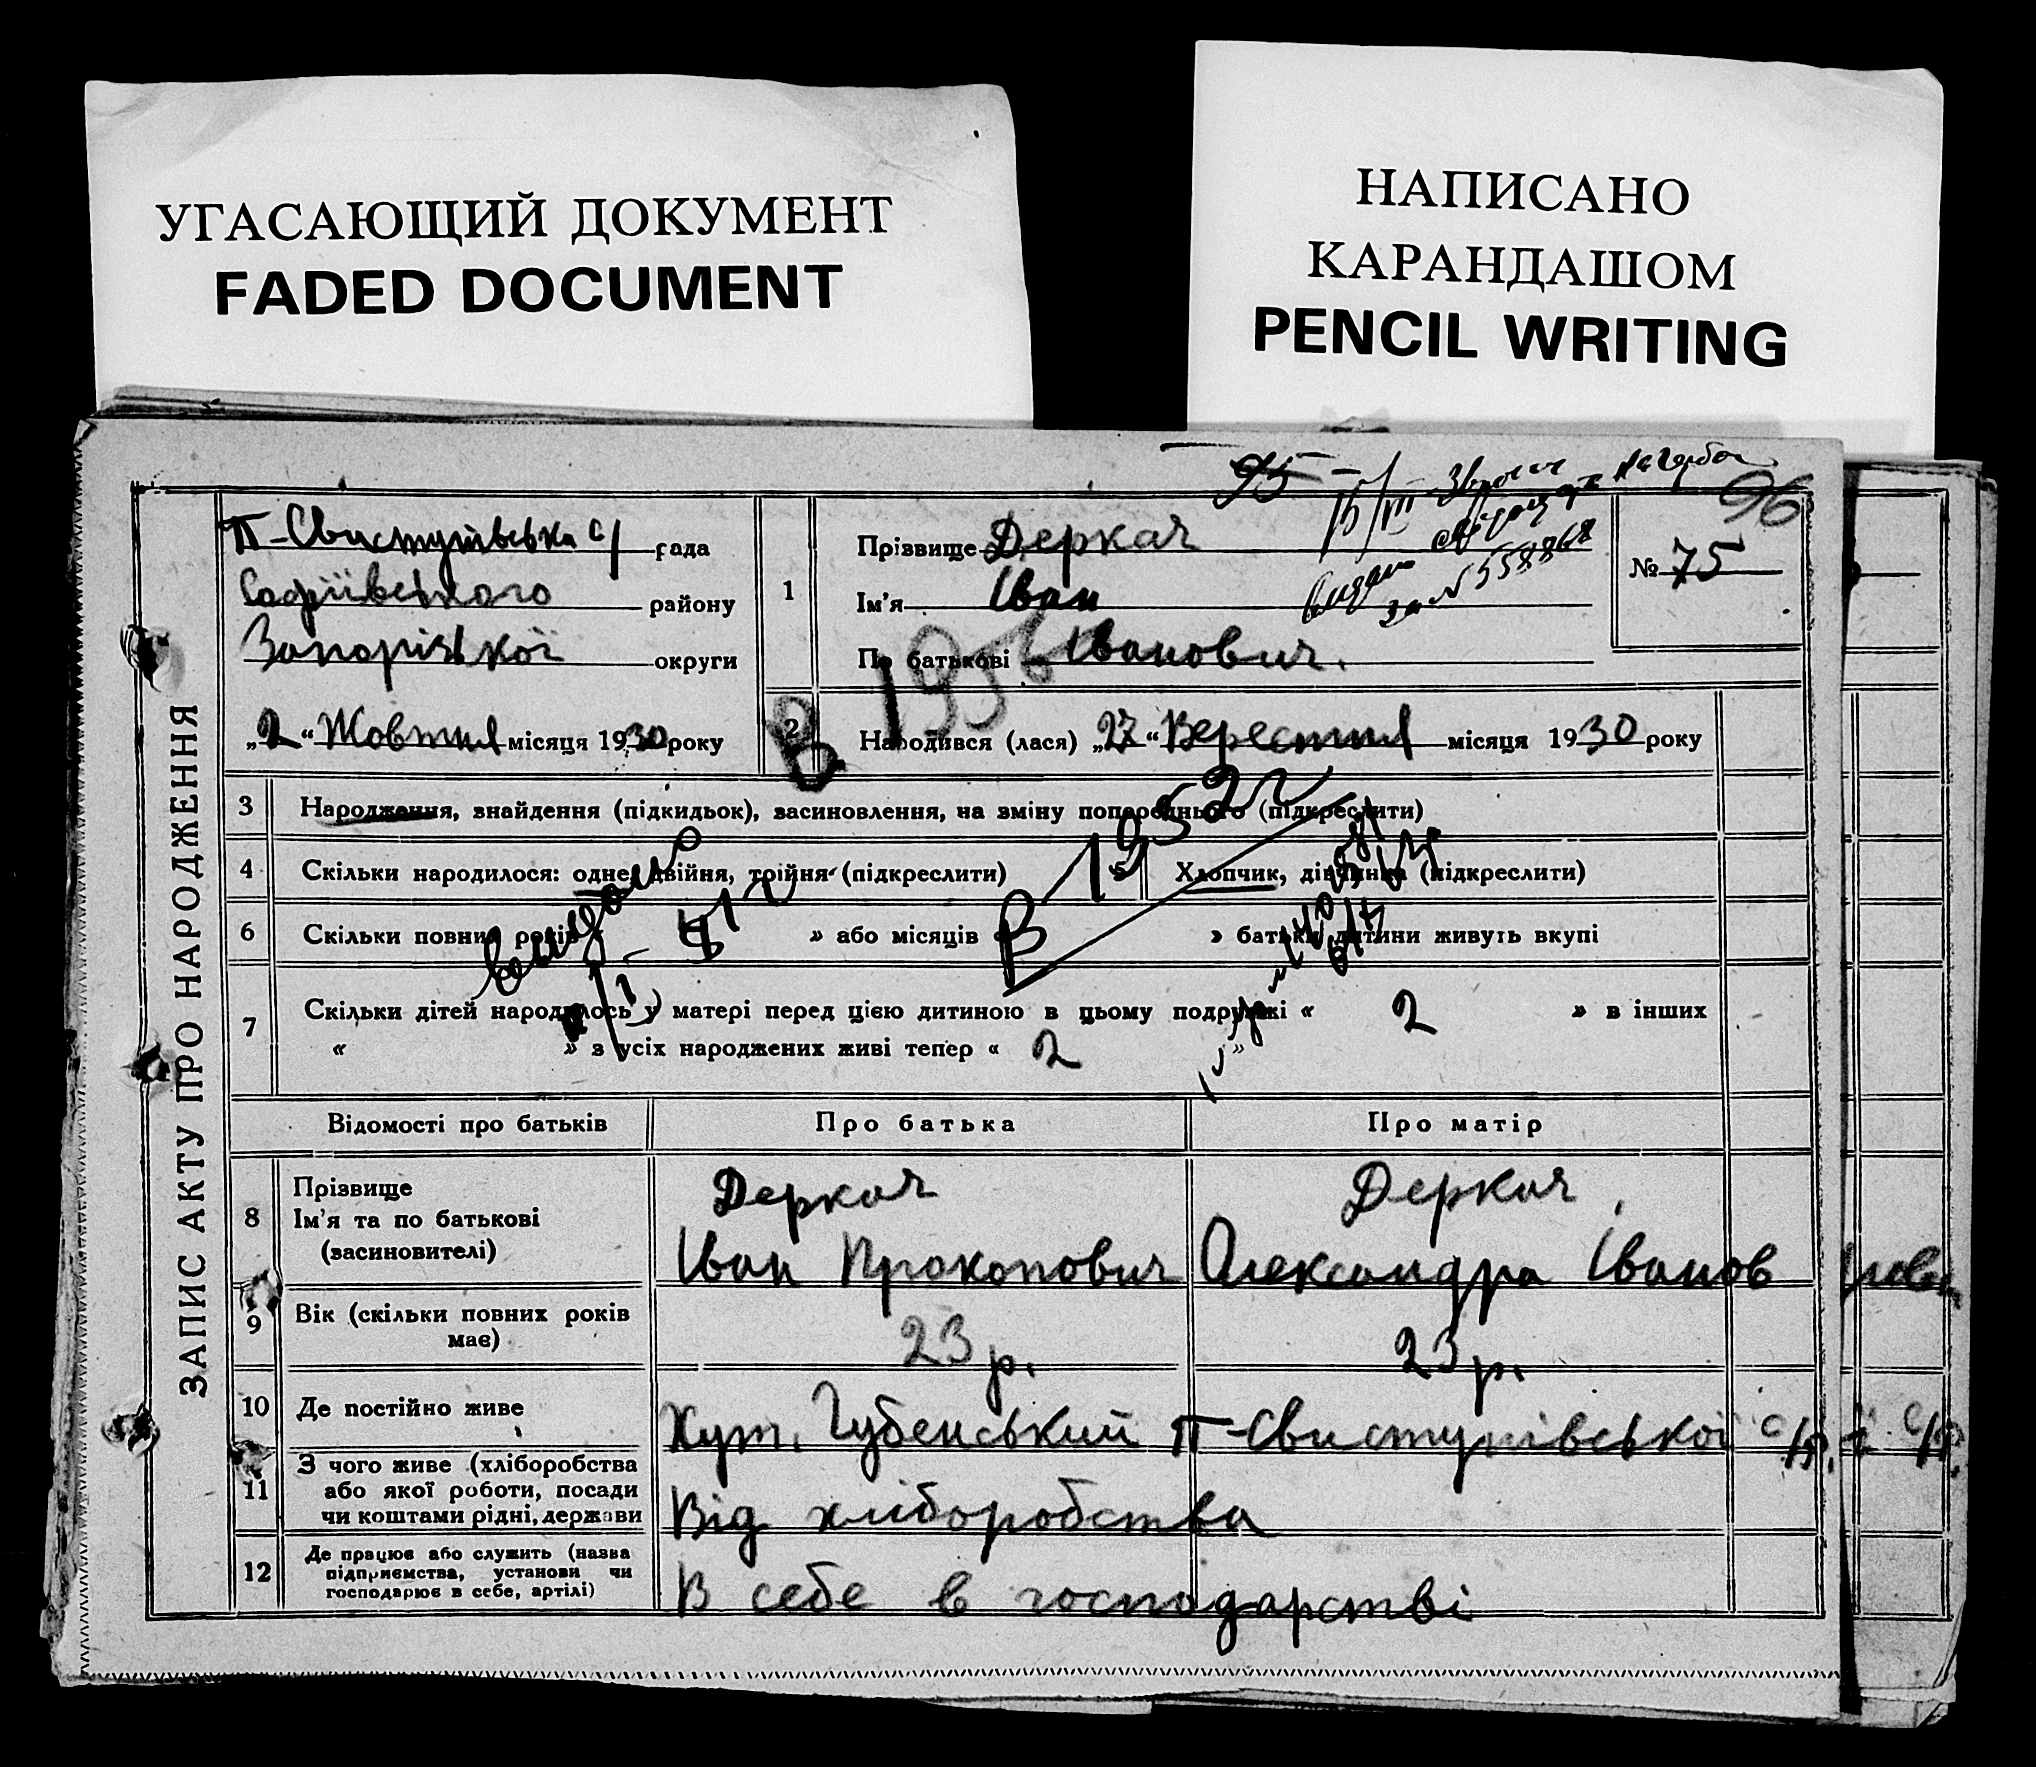 УГАСАЮЩИЙ ДОКУМЕНТ
FADED DOCUMENT
НАПИСАНО
КАРАНДАШОМ
PENCIL WRITING
95
96
ЗАПИС АКТУ ПРО НАРОДЖЕННЯ
П-Свистунівська с/ рада
Софіївського району
Запорізької округи
„2“ Жовтня місяця 1930 року
1
Прізвище Деркач
Ім'я Іван
По батькові Іванович.
Видано
за № 558868
№ 75
2
Народився (лася) „27“ Вересня місяця 1930 року
В 1956
3 Народження, знайдення (підкидьок), засиновлення, на зміну попереднього (підкреслити)
4 Скільки народилося: одне, двійня, трійня (підкреслити)
5 Хлопчик, дівчинка (підкреслити)
6 Скільки повних років « » або місяців « » батьки дитини живуть вкупі
видано
В 1952 г
7 Скільки дітей народилось у матері перед цією дитиною в цьому подружжі « 2 » в інших
« » з усіх народжених живі тепер « 2 »
Відомості про батьків Про батька Про матір
8 Прізвище
Ім'я та по батькові
(засиновителі)
Деркач Деркач
Іван Прокопович Олександра Іванов
9 Вік (скільки повних років
має)
23 р. 23 р.
10 Де постійно живе
Хут. Губенський П-Свистунівської с/р.
11 З чого живе (хліборобства
або якої роботи, посади
чи коштами рідні, держави
Від хліборобства
12 Де працює або служить (назва
підприємства, установи чи
господарює в себе, артілі)
В себе в господарстві